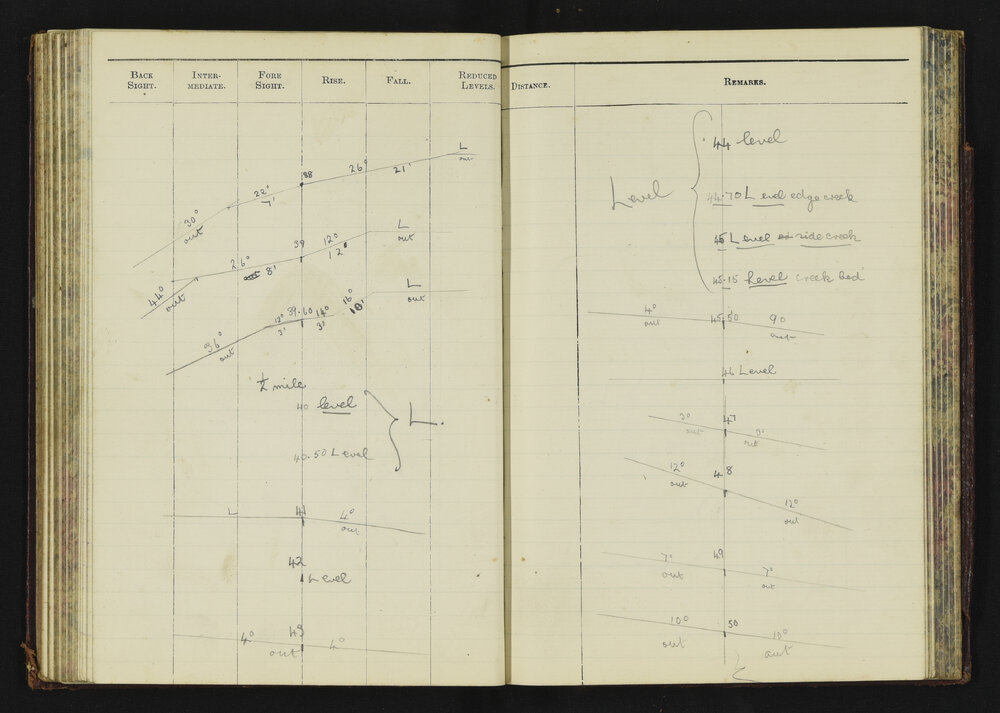 BACK SIGHT. INTER-MEDIATE. FORE SIGHT. RISE. FALL. REDUCED LEVELS.
L
out
88 26° 21'
22° 7'
30° out
L
out
39 12° 12'
26° 8'
44° out
L
out
39.60 14° 3' 16° 18'
12° 3'
36° out
½ mile
40 level
L.
40.50 Level
L 41 4° out
42
Level
4° 43 4°
out
DISTANCE. REMARKS.
44 level
Level
44.70 Level edge creek
45 Level side creek
45.15 Level creek bed
4° out 45.50 90 out
46 Level
3° out 47 3° out
12° out 48 12° out
7° out 49 7° out
10° out 50 10° out